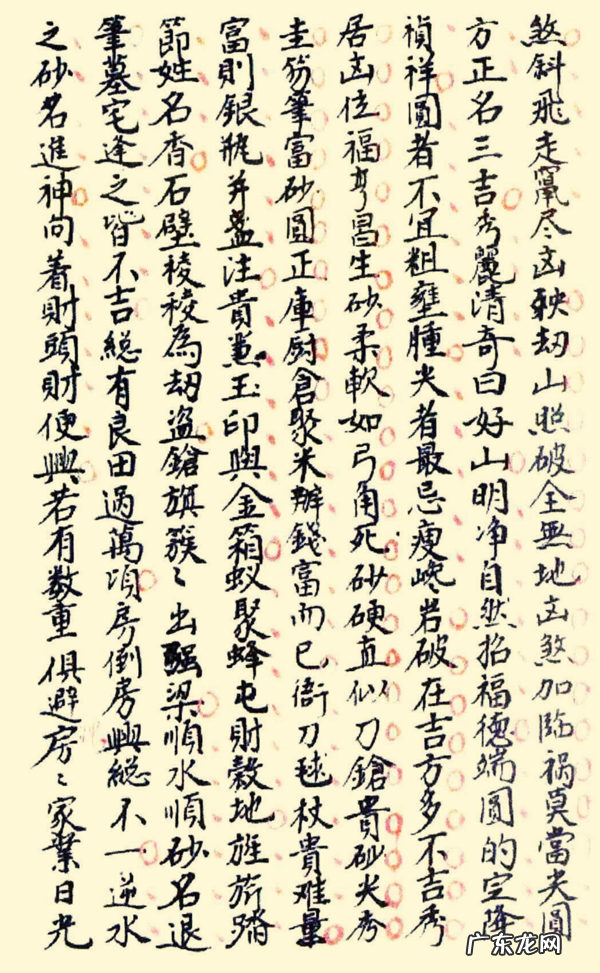 煞斜飛走竄尽凶殃劫山照破全無地凶煞加臨禍莫當尖圓
方正名三吉秀麗清奇曰好山明净自然招福德端圓的定降
禎祥圓者不宜粗壅腫尖者最忌瘦巉岩破在吉方多不吉秀
居凶位福亨昌生砂柔軟如弓角死砂硬直似刀鎗貴砂尖秀
圭笏筆富砂圓正庫厨倉聚米辦錢富而已衙刀毬杖貴难量
富則銀瓶并盞注貴惹玉印與金箱蚁聚蜂屯財穀地旌旂踏
節姓名香石壁稜稜為劫盗鎗旗簇々出强梁順水順砂名退
筆墓宅逢之皆不吉総有良田過萬頃房倒房興総不一逆水
之砂名進神向着財頭財便興若有数重俱避房々家業日光
广东龙网